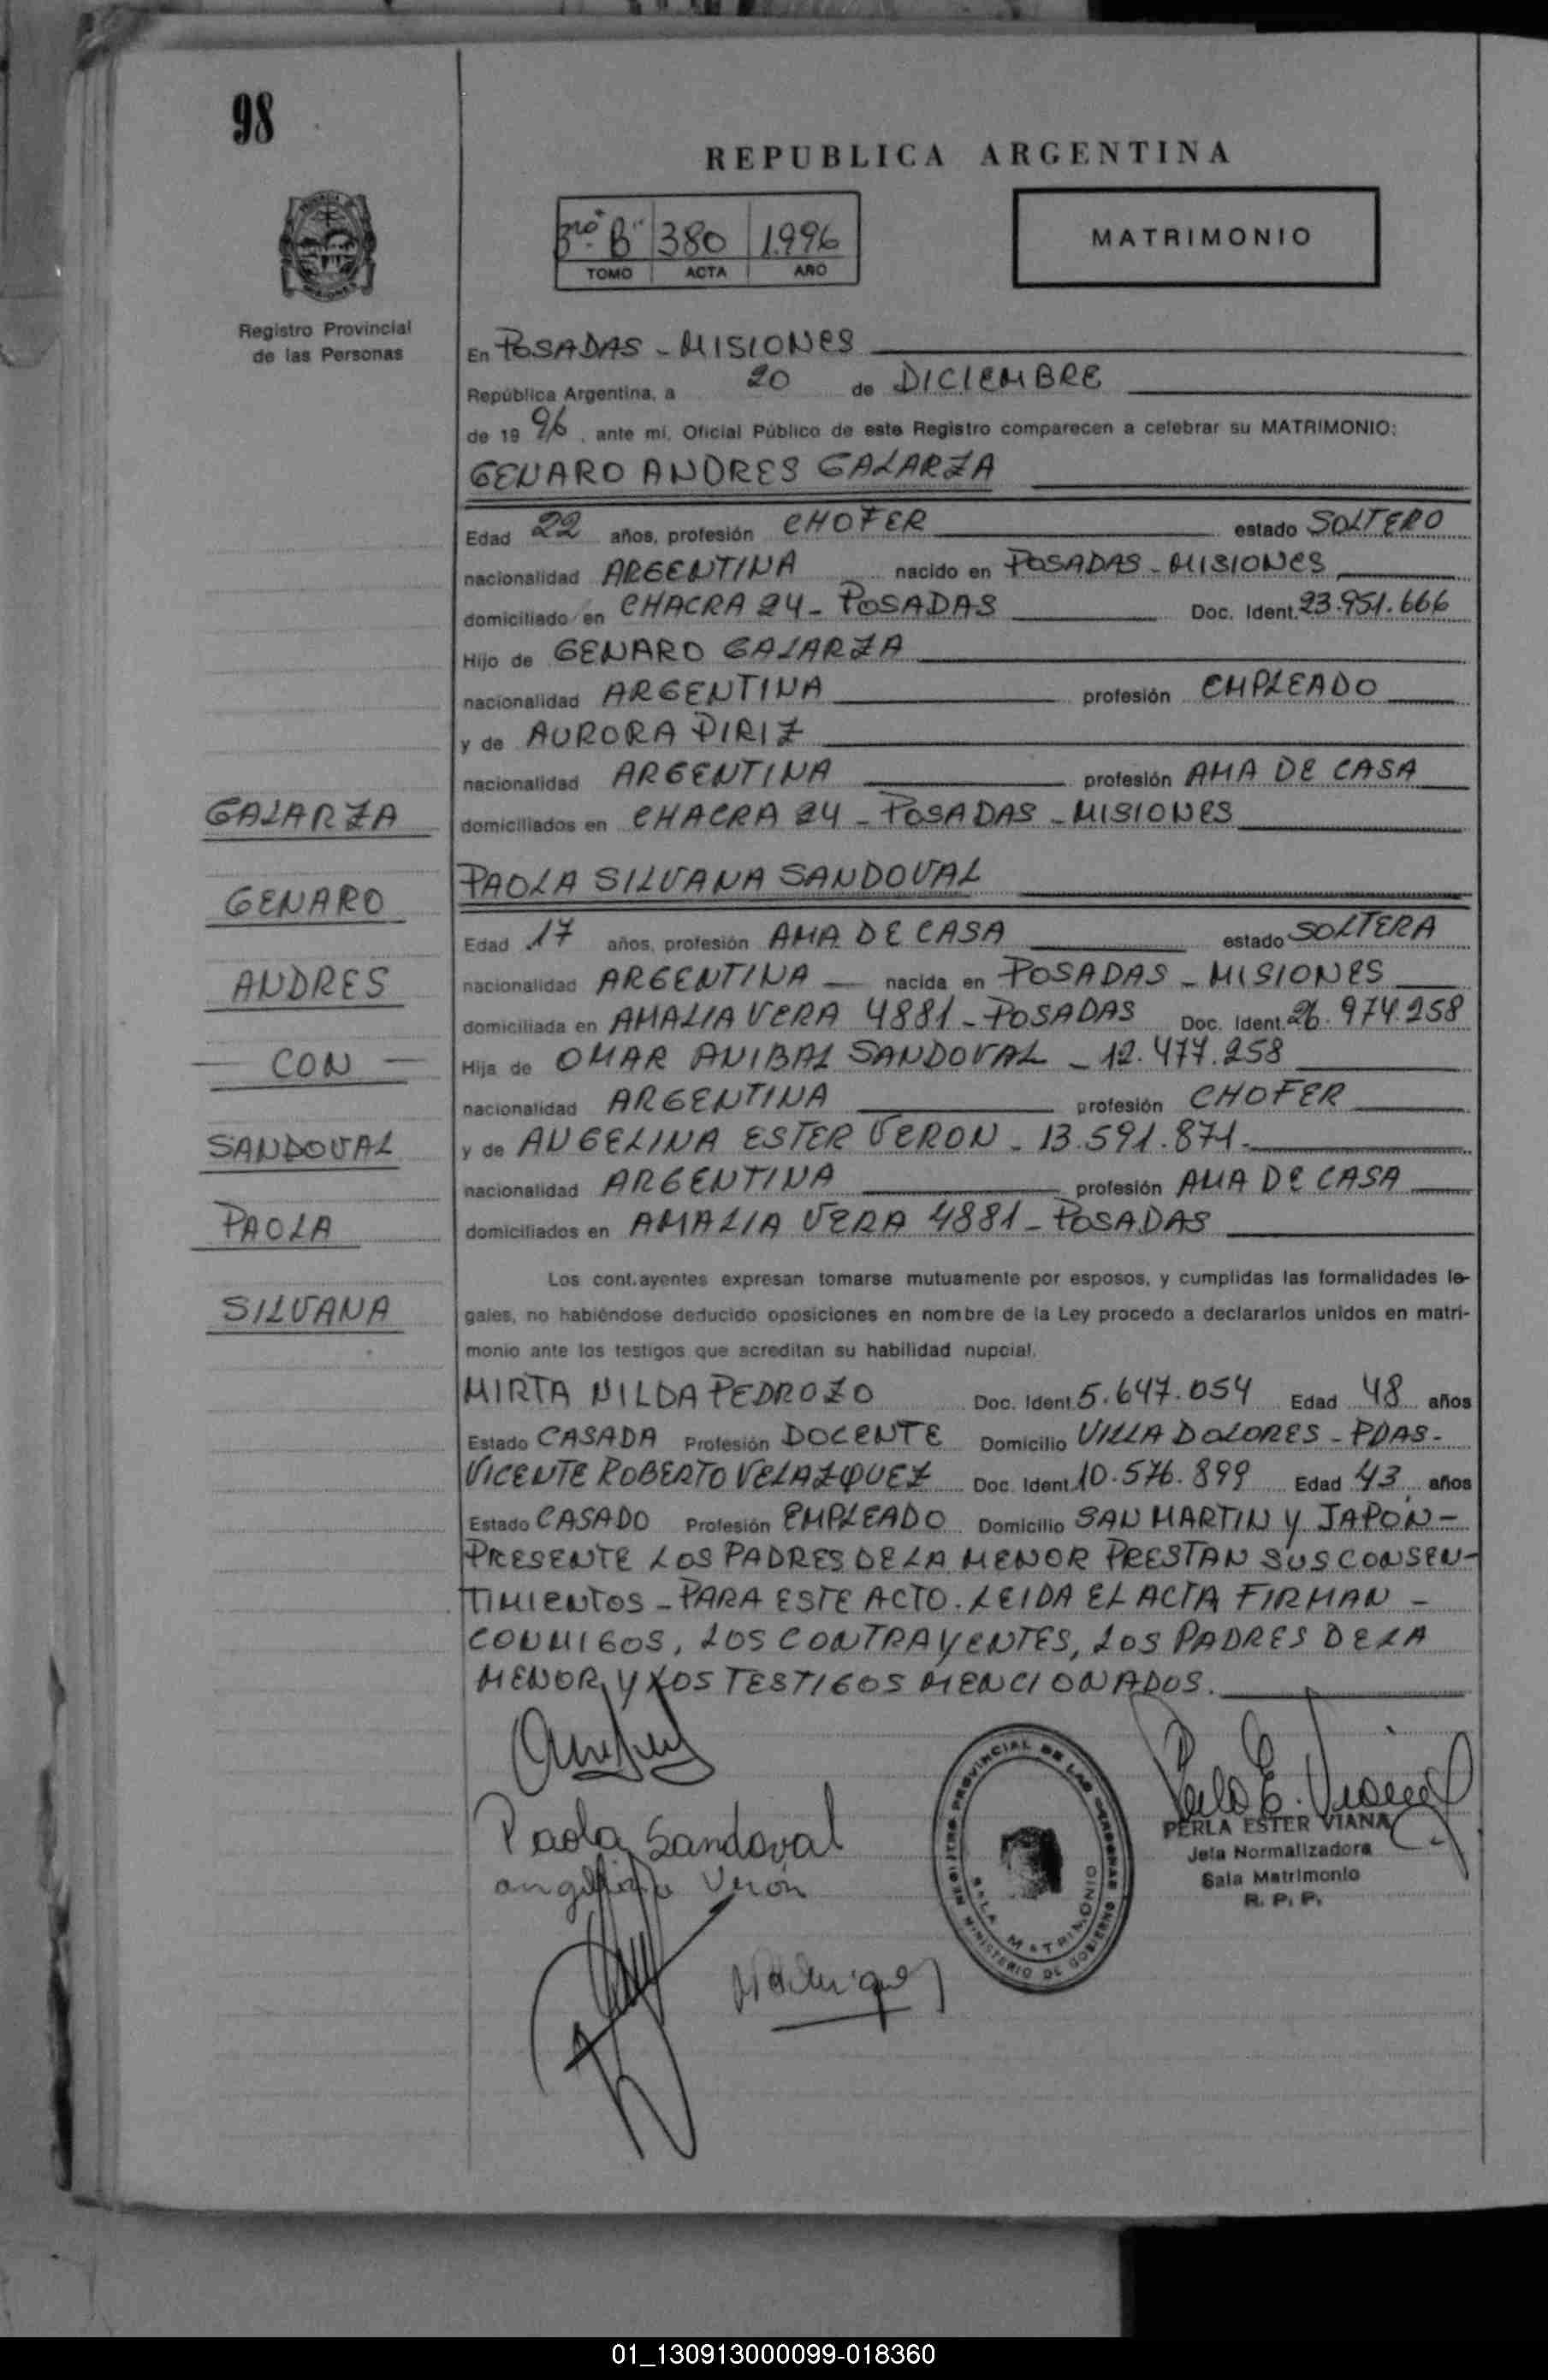 98
REPUBLICA ARGENTINA
3ro "B" 380 1.996
TOMO ACTA AÑO
MATRIMONIO
Registro Provincial
de las Personas
En POSADAS - MISIONES
República Argentina, a 20 de DICIEMBRE
de 19 96, ante mí, Oficial Público de este Registro comparecen a celebrar su MATRIMONIO:
GENARO ANDRES GALARZA
Edad 22 años, profesión CHOFER estado SOLTERO
nacionalidad ARGENTINA nacido en POSADAS - MISIONES
domiciliado en CHACRA 24 - POSADAS Doc. Ident. 23.951.666
Hijo de GENARO GALARZA
nacionalidad ARGENTINA profesión EMPLEADO
y de AURORA PIRIZ
nacionalidad ARGENTINA profesión AMA DE CASA
domiciliados en CHACRA 24 - POSADAS - MISIONES
GALARZA
GENARO
ANDRES
- CON -
SANDOVAL
PAOLA
SILVANA
PAOLA SILVANA SANDOVAL
Edad 17 años, profesión AMA DE CASA estado SOLTERA
nacionalidad ARGENTINA - nacida en POSADAS - MISIONES
domiciliada en AMALIA VERA 4881 - POSADAS Doc. Ident. 26.974.258
Hija de OMAR ANIBAL SANDOVAL - 12.477.258
nacionalidad ARGENTINA profesión CHOFER
y de ANGELINA ESTER VERON - 13.591.871.
nacionalidad ARGENTINA profesión AMA DE CASA
domiciliados en AMALIA VERA 4881 - POSADAS
Los cont.ayentes expresan tomarse mutuamente por esposos, y cumplidas las formalidades le-
gales, no habiéndose deducido oposiciones en nombre de la Ley procedo a declararlos unidos en matri-
monio ante los testigos que acreditan su habilidad nupcial.
MIRTA NILDA PEDROZO Doc. Ident. 5.647.054 Edad 48 años
Estado CASADA Profesión DOCENTE Domicilio VILLA DOLORES - PDAS -
VICENTE ROBERTO VELAZQUEZ Doc. Ident. 10.576.899 Edad 43 años
Estado CASADO Profesión EMPLEADO Domicilio SAN MARTIN Y JAPON -
PRESENTE LOS PADRES DE LA MENOR PRESTAN SUS CONSEN-
TIMIENTOS - PARA ESTE ACTO. LEIDA EL ACTA FIRMAN -
CONMIGOS, LOS CONTRAYENTES, LOS PADRES DE LA
MENOR, Y LOS TESTIGOS MENCIONADOS.
Paola Sandoval
angelina Verón
REGISTRO PROVINCIAL DE LAS PERSONAS
SALA MATRIMONIO
MINISTERIO DE GOBIERNO
Perla E. Viana
PERLA ESTER VIANA
Jefa Normalizadora
Sala Matrimonio
R. P. P.
01_130913000099-018360